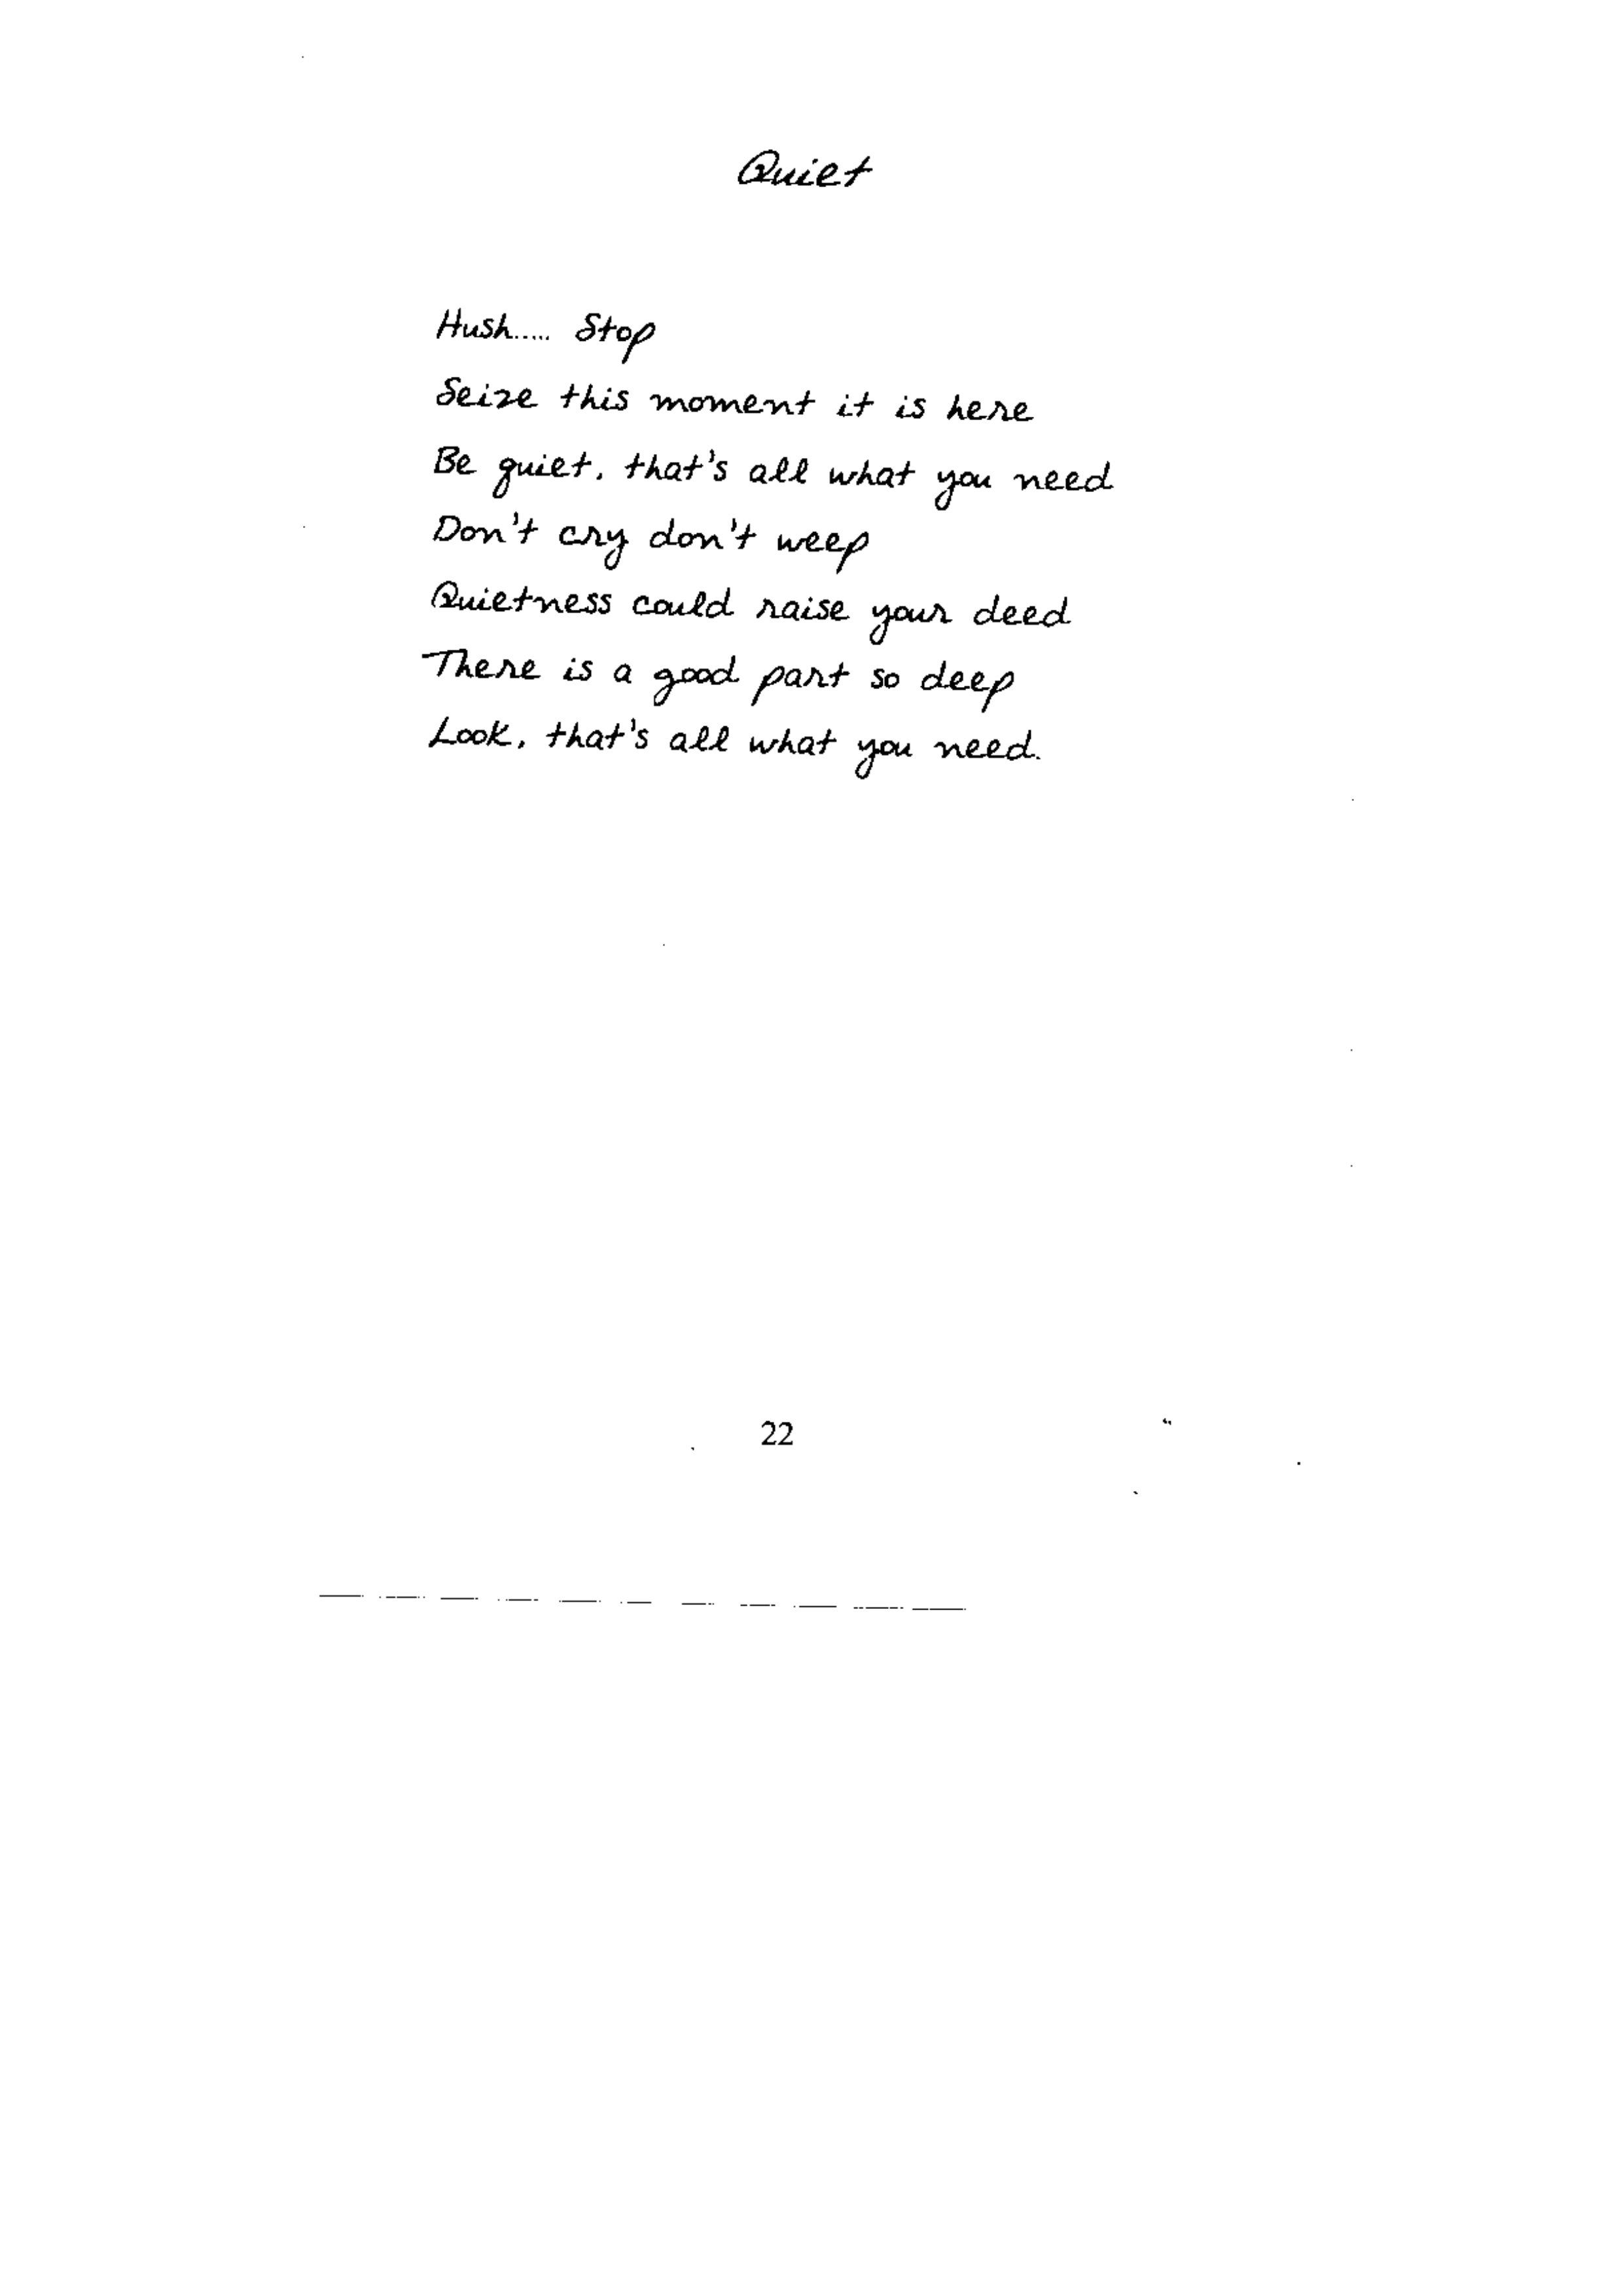 Quiet
Hush..... Stop
Seize this moment it is here
Be quiet, that's all what you need
Don't cry don't weep
Quietness could raise your deed
There is a good part so deep
Look, that's all what you need.
22